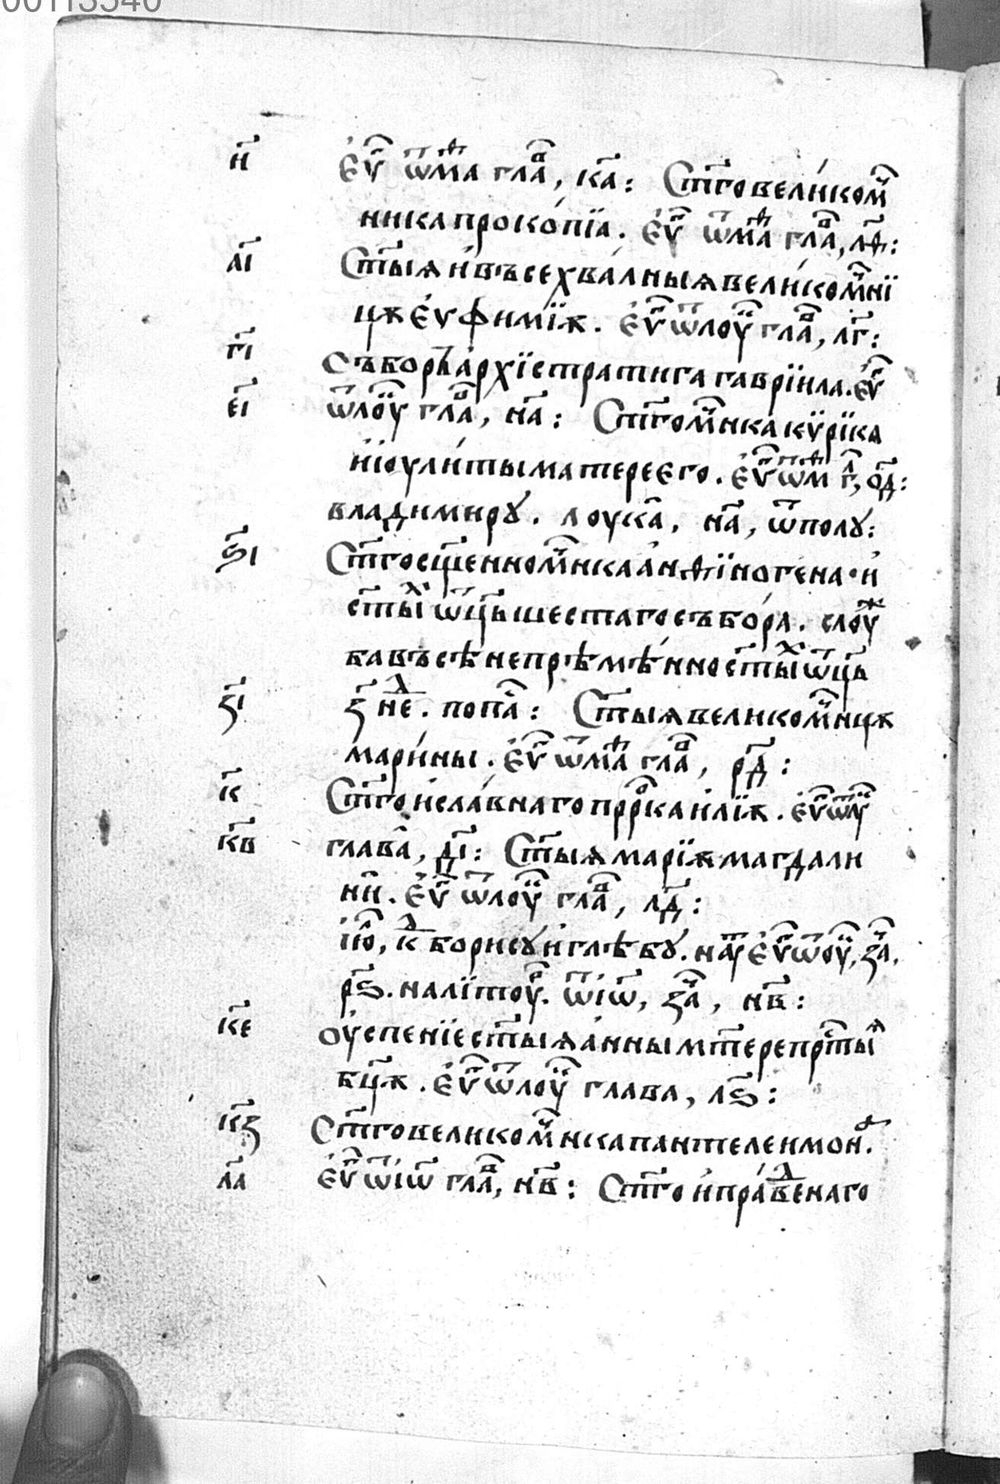 00113540
н҃ є҆ѵ҃ ѿмⷴ҇а глⷡ҇а, к҃а : Ст҃го вели́ком҃
ника проко́пїа . є҆ѵ҃ ѿмⷴ҇а глⷡ҇а, л҃ѳ :
а҃і Ст҃ыѧ и҆ въсехва́лныѧ вели́ком҃нї
цѫ є҆ѵфи́мїѫ . є҆ѵ҃ ѿлоу҃ глⷡ҇а, л҃г :
г҃і Съборъ а҆рхїстратига гаврїила . є҆ѵ҃
е҃і ѿлоу҃ глⷡ҇а, н҃а : Ст҃го м҃нка кѵ́рїка
и҆ і҆оули́ты матере его . є҆ѵ҃ ѿмⷴ҇ г҃, о҃д :
владимиру . лоука҃, н҃а, ѿполꙋ :
ѕ҃і Ст҃го сщ҃енном҃нка а҆нѳїногена · и҆
ст҃ыⷯ ѿц҃ь шестаго събо́ра . слоуⷤ
ба въсѣ непрѣмѣ́нно ст҃ыⷯ ѿц҃ь
з҃і з҃ неⷣ . попа҃ : Ст҃ыѧ великом҃ницѫ
мари́ны . є҆ѵ҃ ѿмⷴ҇а глⷡ҇а, р҃д :
к҃ Ст҃го и҆ сла́внаго прⷪ҇рка и҆лїѫ . є҆ѵ҃ ѿлу҃
к҃в глава҃, д҃і : Ст҃ыѧ марїѫ магдали
ни҃ . є҆ѵ҃ ѿлоу҃ глⷡ҇а, л҃д :
і҆ю҃, к҃д борисꙋ и҆ глѣбꙋ . наоуⷮ є҆ѵ҃ ѿоу҃, за҃,
р҃ѕ . на лїтоу҃ . ѿ і҆ѡ҃, за҃, н҃в :
к҃е оу҆спенїе ст҃ыѧ а҆нны мт҃ере прⷭ҇тыѧ
бц҃ѫ . є҆ѵ҃ ѿлоу҃ глава, л҃ѕ :
к҃з Ст҃го великом҃нка пантелеимонⷶ .
л҃а є҆ѵ҃ ѿ і҆ѡ҃ глⷡ҇а, н҃в : Ст҃го и҆ пра́вⷣенаго